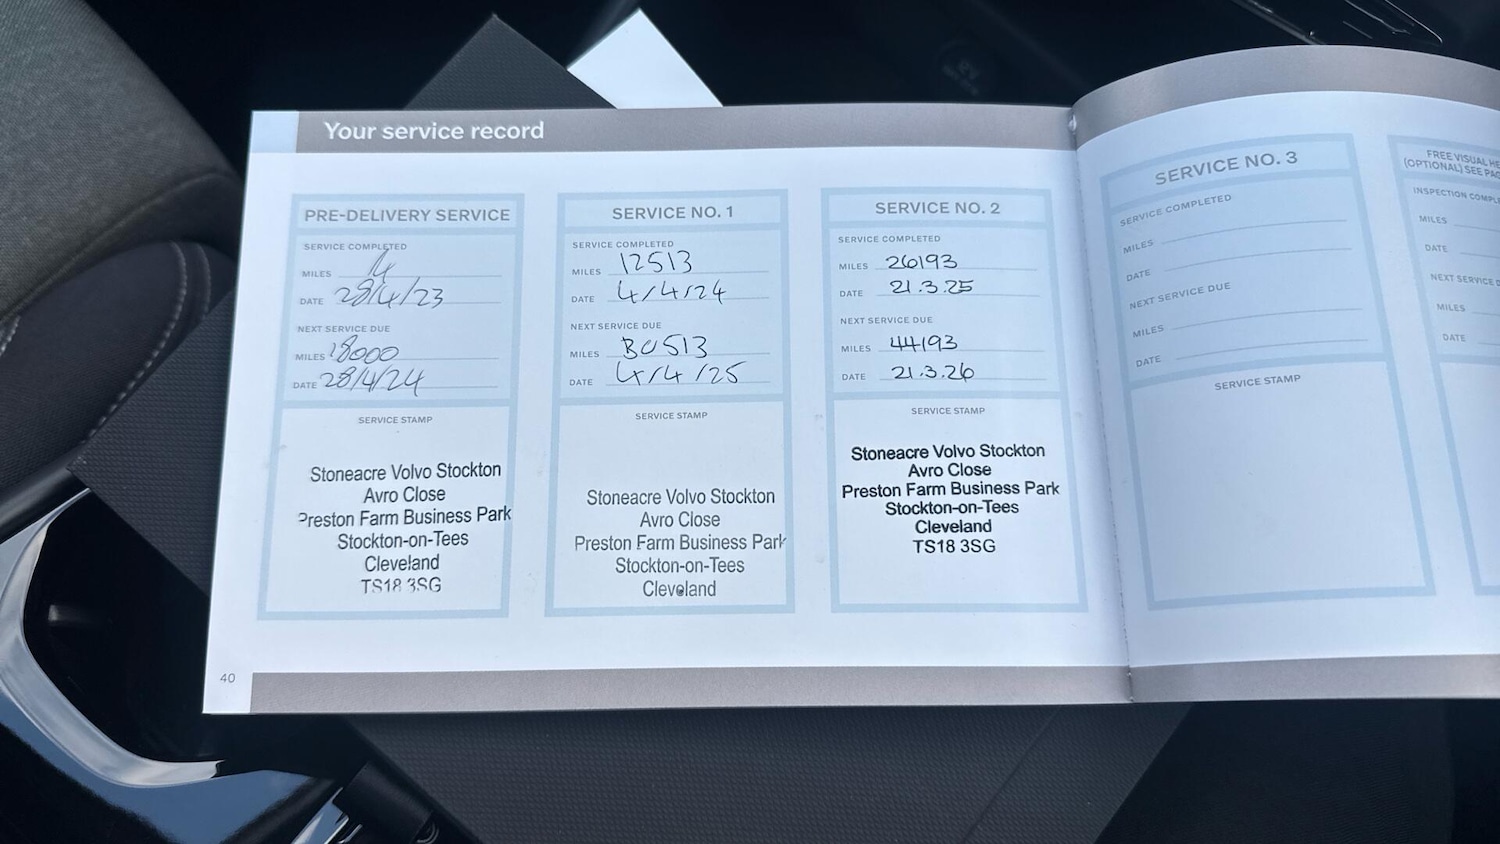 Your service record
PRE-DELIVERY SERVICE
SERVICE COMPLETED
MILES 14
DATE 28/4/23
NEXT SERVICE DUE
MILES 18000
DATE 28/4/24
SERVICE STAMP
Stoneacre Volvo Stockton
Avro Close
Preston Farm Business Park
Stockton-on-Tees
Cleveland
TS18 3SG
SERVICE NO. 1
SERVICE COMPLETED
MILES 12513
DATE 4/4/24
NEXT SERVICE DUE
MILES 30513
DATE 4/4/25
SERVICE STAMP
Stoneacre Volvo Stockton
Avro Close
Preston Farm Business Park
Stockton-on-Tees
Cleveland
SERVICE NO. 2
SERVICE COMPLETED
MILES 26193
DATE 21.3.25
NEXT SERVICE DUE
MILES 44193
DATE 21.3.26
SERVICE STAMP
Stoneacre Volvo Stockton
Avro Close
Preston Farm Business Park
Stockton-on-Tees
Cleveland
TS18 3SG
40
SERVICE NO. 3
SERVICE COMPLETED
MILES
DATE
NEXT SERVICE DUE
MILES
DATE
SERVICE STAMP
FREE VISUAL HE
(OPTIONAL) SEE PAG
INSPECTION COMPL
MILES
DATE
NEXT SERVICE D
MILES
DATE